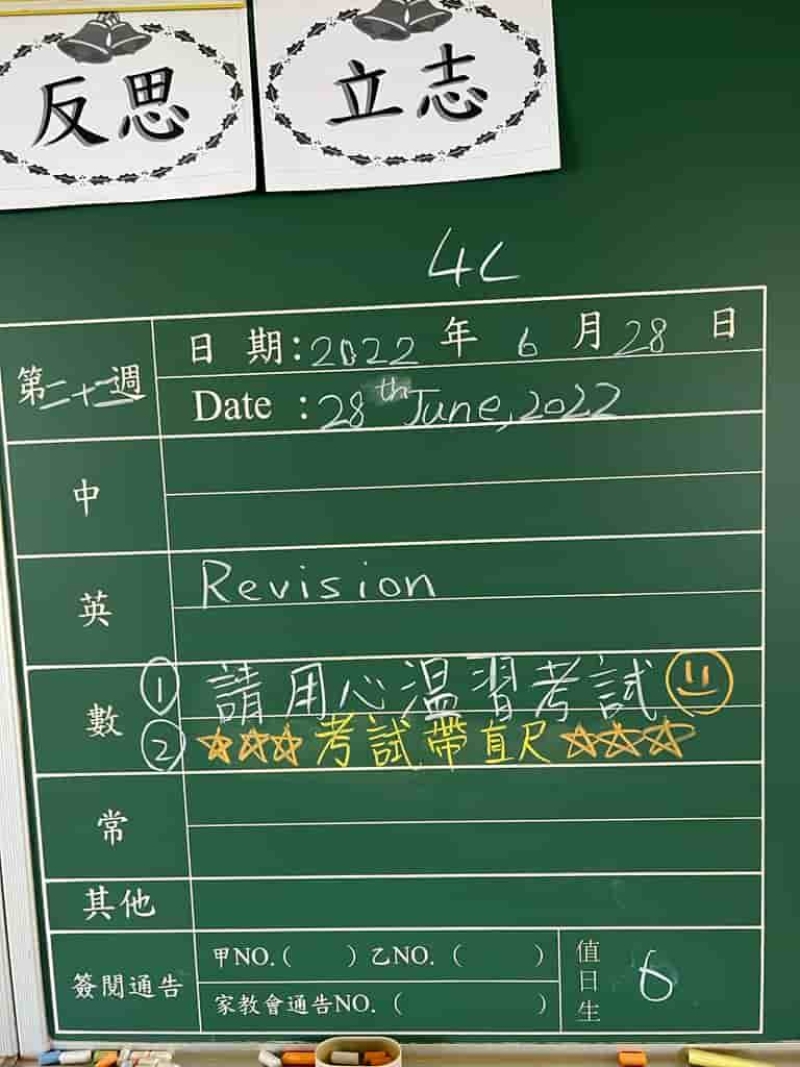 反思 立志
4C
第二十二週 日期:2022年6月28日
Date :28th June,2022
中
英 Revision
數 ① 請用心温習考試
② 考試帶直尺
常
其他
簽閱通告 甲NO.( ) 乙NO. ( ) 值日生 6
家教會通告NO. ( )